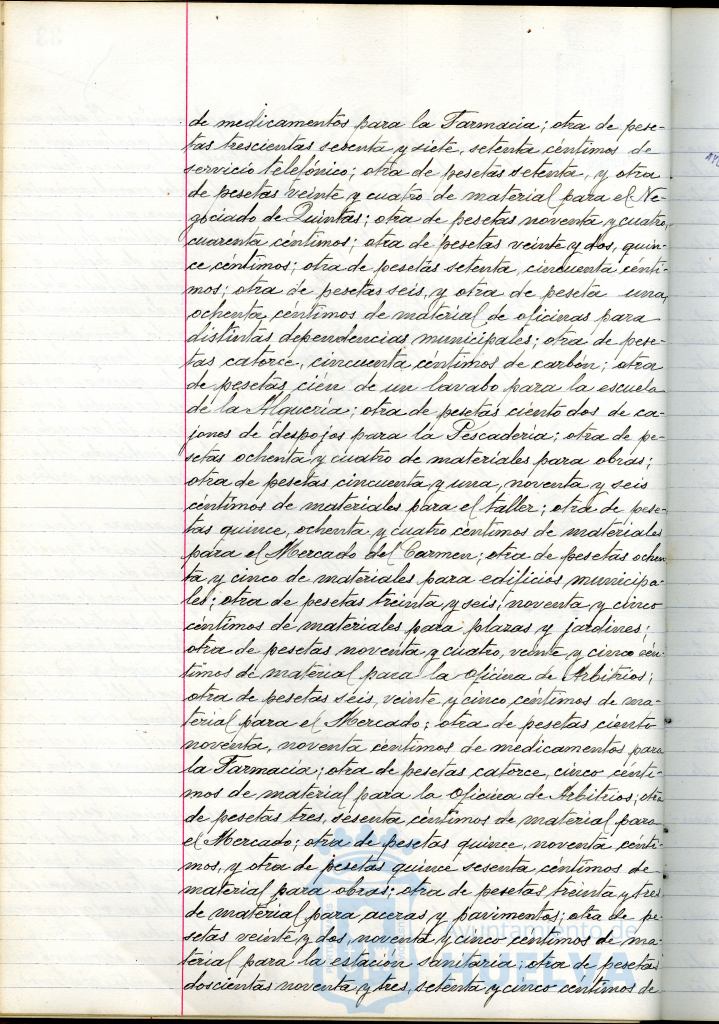 de medicamentos para la Farmacia; otra de pese-
tas trescientas sesenta y siete, setenta céntimos de
servicio telefónico; otra de pesetas setenta, y otra
de pesetas veinte y cuatro de material para el Ne-
gociado de Quintas; otra de pesetas noventa y cuatro,
cuarenta céntimos; otra de pesetas veinte y dos, quin-
ce céntimos; otra de pesetas setenta, cincuenta cénti-
mos; otra de pesetas seis, y otra de peseta una,
ochenta céntimos de material de oficinas para
distintas dependencias municipales; otra de pese-
tas catorce, cincuenta céntimos de carbón; otra
de pesetas cien de un lavabo para la escuela
de la Alquería; otra de pesetas ciento dos de ca-
jones de despojos para la Pescadería; otra de pe-
setas ochenta y cuatro de materiales para obras;
otra de pesetas cincuenta y una, noventa y seis
céntimos de materiales para el taller; otra de pese-
tas quince, ochenta y cuatro céntimos de materiales
para el Mercado del Carmen; otra de pesetas ochen-
ta y cinco de materiales para edificios municipa-
les; otra de pesetas treinta y seis, noventa y cinco
céntimos de materiales para plazas y jardines;
otra de pesetas noventa y cuatro, veinte y cinco cén-
timos de material para la Oficina de Arbitrios;
otra de pesetas seis, veinte y cinco céntimos de ma-
terial para el Mercado; otra de pesetas ciento
noventa, noventa céntimos de medicamentos para
la Farmacia; otra de pesetas catorce, cinco cénti-
mos de material para la Oficina de Arbitrios; otra
de pesetas tres, sesenta céntimos de material para
el Mercado; otra de pesetas quince, noventa cénti-
mos, y otra de pesetas quince sesenta céntimos de
material para obras; otra de pesetas treinta y tres
de material para aceras y pavimentos; otra de pe-
setas veinte y dos, noventa y cinco céntimos de ma-
terial para la estación sanitaria; otra de pesetas
doscientas noventa y tres, setenta y cinco céntimos de
Ayuntamiento de